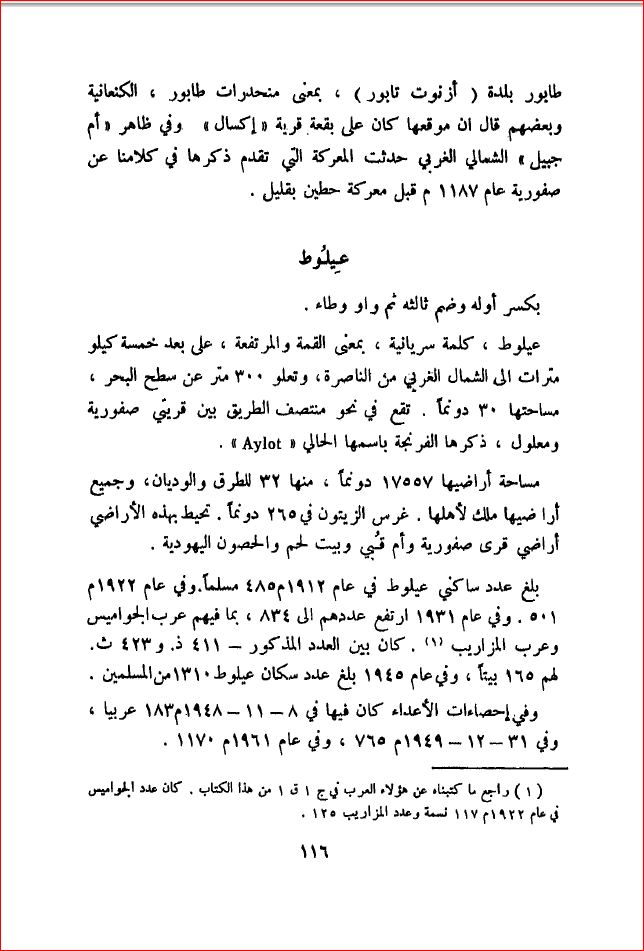 طابور بلدة ( أزنوت تابور ) ، بمعنى منحدرات طابور ، الكنعانية
وبعضهم قال ان موقعها كان على بقعة قرية « إكسال » وفي ظاهر « أم
جبيل » الشمالي الغربي حدثت المعركة التي تقدم ذكرها في كلامنا عن
صفورية عام ١١٨٧ م قبل معركة حطين بقليل .
عِيلُوط
بكسر أوله وضم ثالثه ثم واو وطاء .
عيلوط ، كلمة سريانية ، بمعنى القمة والمرتفعة ، على بعد خمسة كيلو
مترات الى الشمال الغربي من الناصرة، وتعلو ٣٠٠ متر عن سطح البحر ،
مساحتها ٣٠ دونماً . تقع في نحو منتصف الطريق بين قريتي صفورية
ومعلول ، ذكرها الفرنجة باسمها الحالي « Aylot » .
مساحة أراضيها ١٧٥٥٧ دونماً ، منها ٣٢ للطرق والوديان، وجميع
أراضيها ملك لأهلها . غرس الزيتون في ٢٦٥ دونماً . تحيط بهذه الأراضي
أراضي قرى صفورية وأم قُبي وبيت لحم والحصون اليهودية .
بلغ عدد ساكني عيلوط في عام ١٩١٢م ٤٨٥ مسلماً.وفي عام ١٩٢٢م
٥٠١ . وفي عام ١٩٣١ ارتفع عددهم الى ٨٣٤ ، بما فيهم عرب الجواميس
وعرب المزاريب (١) . كان بين العدد المذكور – ٤١١ ذ. و ٤٢٣ ث.
لهم ١٦٥ بيتاً ، وفي عام ١٩٤٥ بلغ عدد سكان عيلوط ١٣١٠ من المسلمين .
وفي إحصاءات الأعداء كان فيها في ٨ – ١١ – ١٩٤٨م ١٨٣ عربيا ،
وفي ٣١ – ١٢ – ١٩٤٩م ٧٦٥ ، وفي عام ١٩٦١م ١١٧٠ .
( ١ ) راجع ما كتبناه عن هؤلاء العرب في ج ١ ق ١ من هذا الكتاب . كان عدد الجواميس
في عام ١٩٢٢م ١١٧ نسمة وعدد المزاريب ١٢٥ .
١١٦